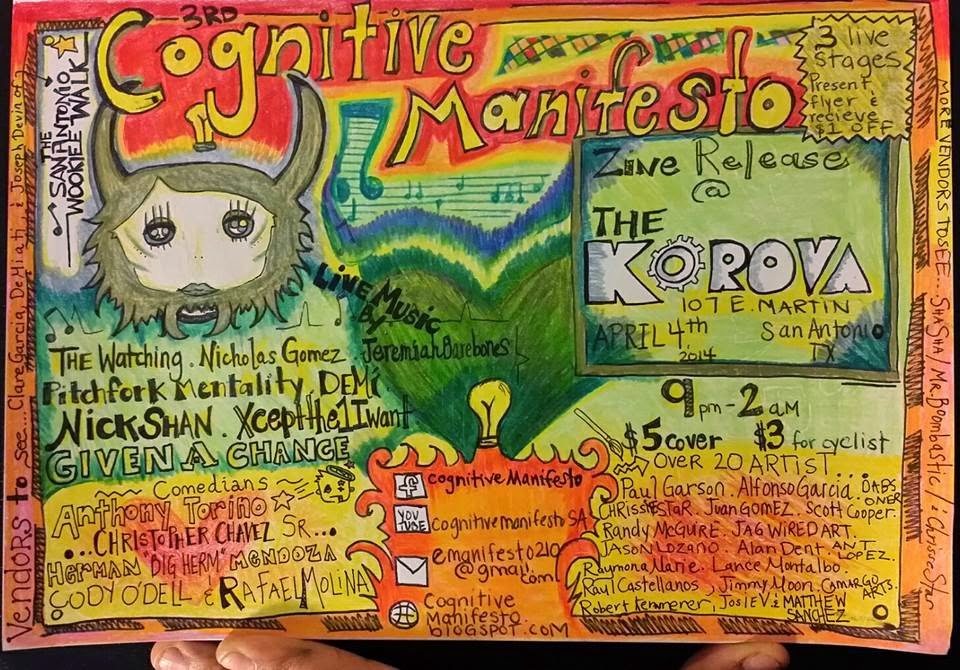 3RD
Cognitive
Manifesto
3 live
stages
Present
flyer &
recieve
$1 OFF
THE
SAN ANTONIO
WOOKIEE WALK
Zine Release
@
THE
KOROVA
107 E. MARTIN
APRIL 4th San Antonio
2014 TX
9pm-2am
$5 cover $3 for cyclist
Live Music
By
THE Watching. Nicholas Gomez. Jeremiah Barebones
Pitchfork Mentality, DEMi
NICK SHAN. Xceptthe1Iwant
GIVEN A CHANGE
Comedians
Anthony Torino
...CHRISTOPHER CHAVEZ SR...
HERMAN "BIG HERM" MENDOZA
CODY O'DELL & RAFAEL MOLINA
f cognitive Manifesto
YOU TUBE cognitivemanifestoSA
cmanifesto210
@gmail.com
Cognitive
Manifesto.
blogspot.com
OVER 20 ARTIST...
Paul Garson. Alfonso Garcia. DABS ONER
CHRISSIESTAR. Juan GOMEZ. Scott Cooper.
Randy McGuire. JAG WIRED ART.
JASON LOZANO. Alan Dent. ANT LOPEZ.
Raymona Marie. Lance Montalbo.
Raul Castellanos, Jimmy Moon. CAMARGO ARTS.
Robert Kemmerer, Josie V. & MATTHEW SANCHEZ
Vendors to see... Clare Garcia, DeMiati, & Joseph Devino
MORE VENDORS TO SEE... ShaSha / Mr. Boombastic / & ChrissieStar